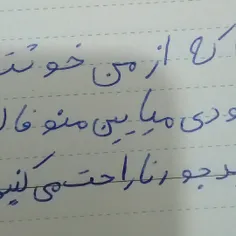 که از من خوشت
ودی میایین منو فا
جور ناراحت می کنی